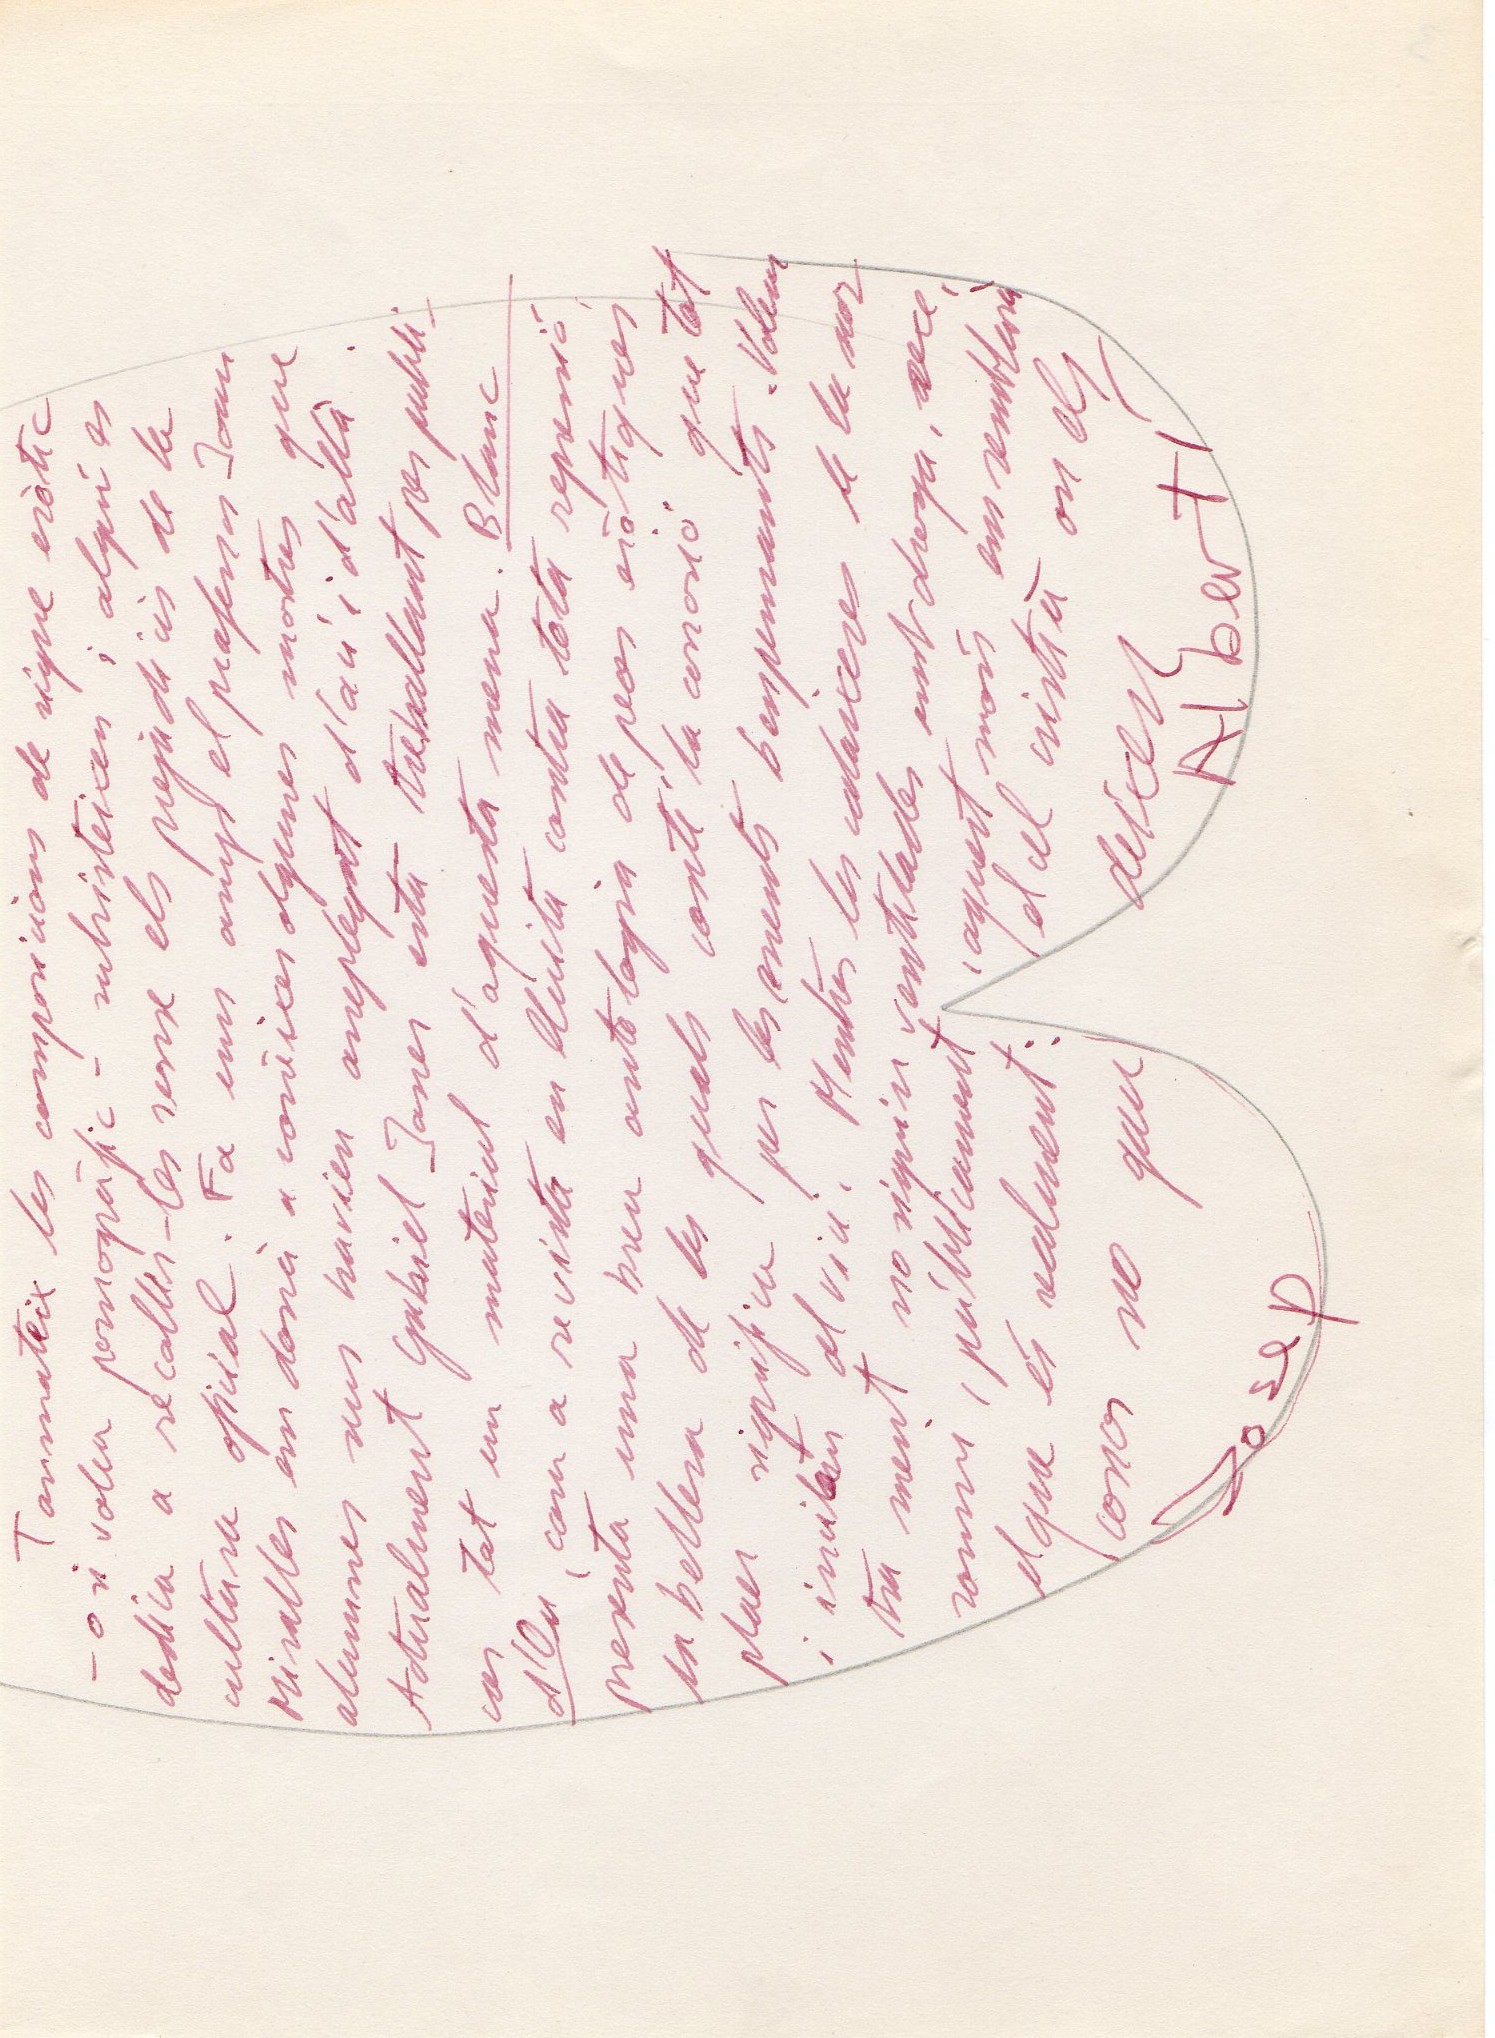 Tanmateix les composicions de signe eròtic
- o si voleu pornogràfic - subsisteixen i algú es
dedica a recollir-les sense els prejudicis de la
cultura oficial. Fa uns anys el professor Joan
Miralles em donà a conèixer algunes mostres que
alumnes seus havien arreplegat d'ací i d'allà.
Actualment Gabriel Janer està treballant per publi-
car tot un material d'aquesta mena. Blanc
d'Ou, com a revista en lluita contra tota repressió,
presenta una breu antologia de peces eròtiques
la bellesa de les quals conté la cançó que tot
plaer significa per les ments benpensants. Volem
i incitam al viu. Mentres les coixeses de la nos-
tra ment no siguin ventilades amb força, sexe,
somni, públicament, aquest món ens semblarà
el que és realment: el cel cristià on els
cossos no que
desixen
Josep Albertí